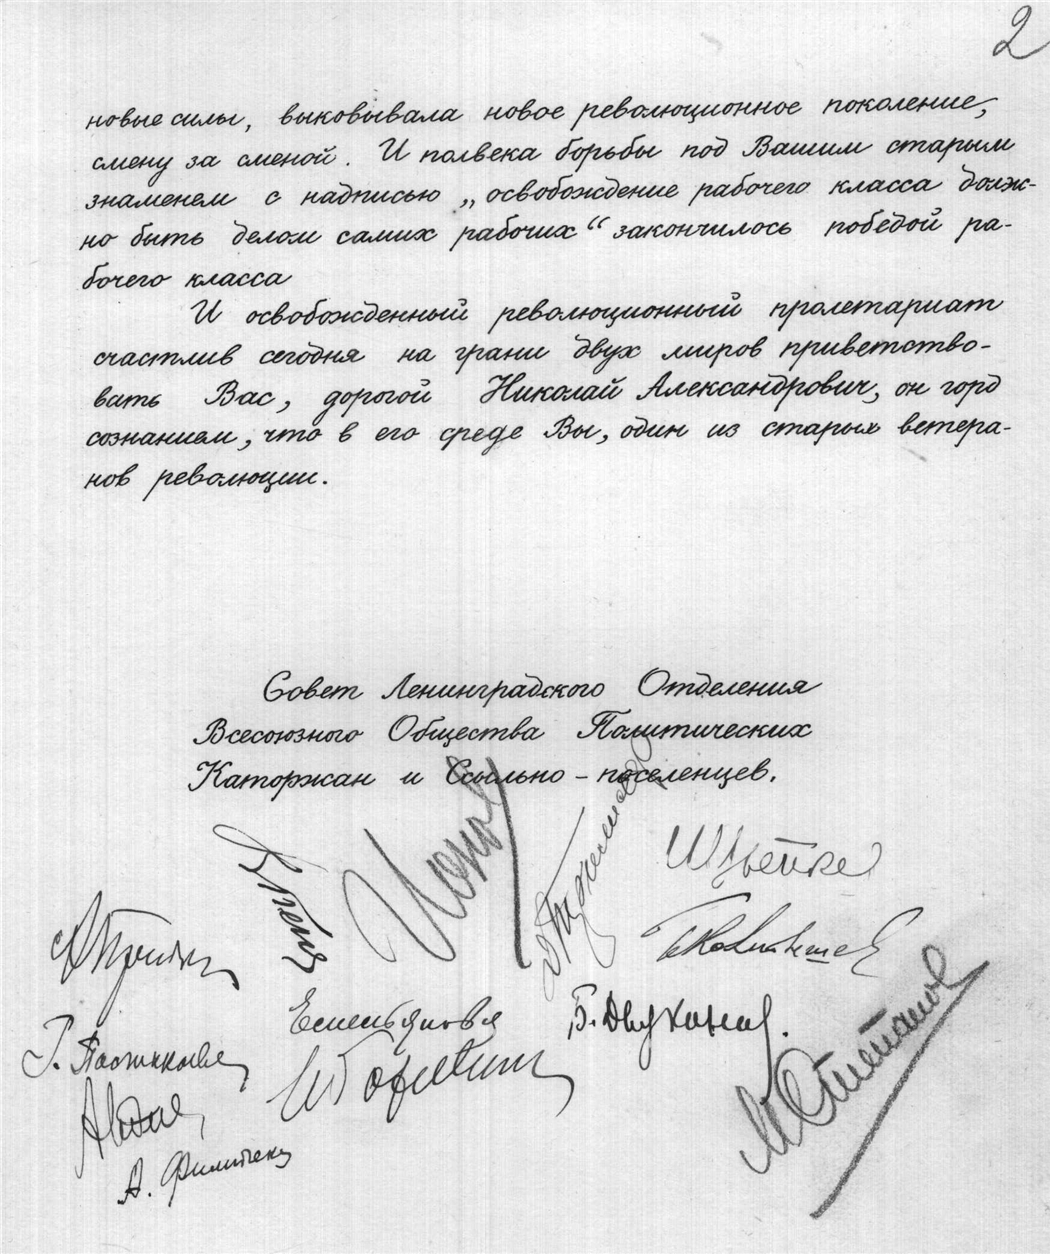 2
новые силы, выковывала новое революционное поколение,
смену за сменой. И полвека борьбы под Вашим старым
знаменем с надписью „освобождение рабочего класса долж-
но быть делом самих рабочих“ закончилось победой ра-
бочего класса
И освобожденный революционный пролетариат
счастлив сегодня на грани двух миров приветство-
вать Вас, дорогой Николай Александрович, он горд
сознанием, что в его среде Вы, один из старых ветера-
нов революции.
Совет Ленинградского Отделения
Всесоюзного Общества Политических
Каторжан и Ссыльно-поселенцев.
М Степанов